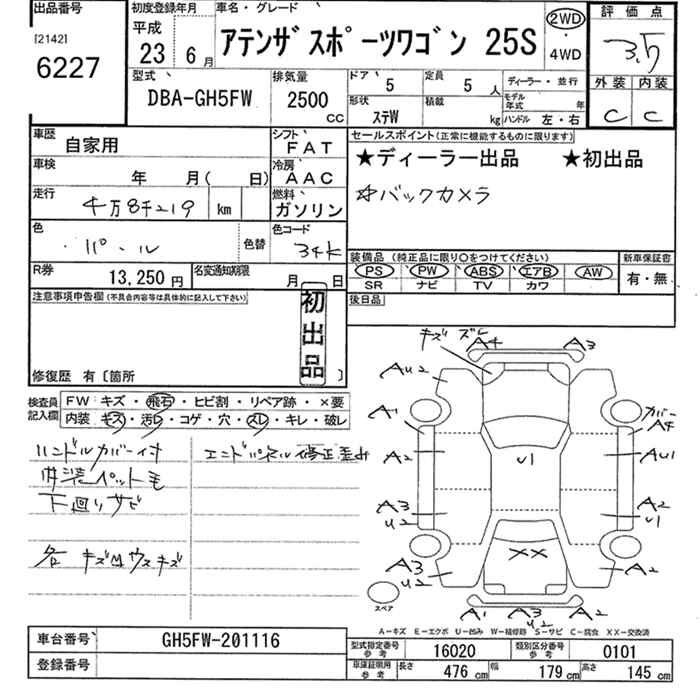 出品番号
[2142]
6227
初度登録年月
平成
23 6月
車名・グレード
アテンザスポーツワゴン 25S
2WD
・
4WD
評価点
3.5
外装 内装
C C
型式
DBA-GH5FW
排気量
2500
CC
ドア 5
形状 ステW
定員 5 人
積載 kg
ディーラー・並行
モデル年式 年
ハンドル 左・右
車歴 自家用
シフト FAT
車検 年 月( 日)
冷房 AAC
走行 4万8千219 km
燃料 ガソリン
色 パール
色替
色コード 34K
R券 13,250円
名変通知期限 月 日
セールスポイント(正常に機能するものに限ります)
★ディーラー出品 ★初出品
☆バックカメラ
装備品 (純正品に限り○をつけてください)
PS PW ABS エアB AW
SR ナビ TV カワ
新車保証書
有・無
後日品
注意事項申告欄(不具合内容等は具体的に記入して下さい)
初出品
修復歴 有〔箇所
検査員記入欄
FW キズ・飛石・ヒビ割・リペア跡・×要
内装 キズ・汚レ・コゲ・穴・スレ・キレ・破レ
ハンドルカバー付
内装ペット毛
下廻りサビ
各 キズ凹ウスキズ
エンドパネル修正歪み
キズ ズレ
A4 A3
AU2
A1
カバー
A4
A2
U1
AU1
A3
U2
A2
U1
XX
A3
U2
A2
スペア
A1 A3
U2
A2
A-キズ E-エクボ U-凹み W-補修跡 S-サビ C-腐食 XX-交換済
車台番号 GH5FW-201116
登録番号
型式指定番号
参考
16020
類別区分番号
参考
0101
車庫証明用
参考
長さ 476 cm 幅 179 cm 高さ 145 cm